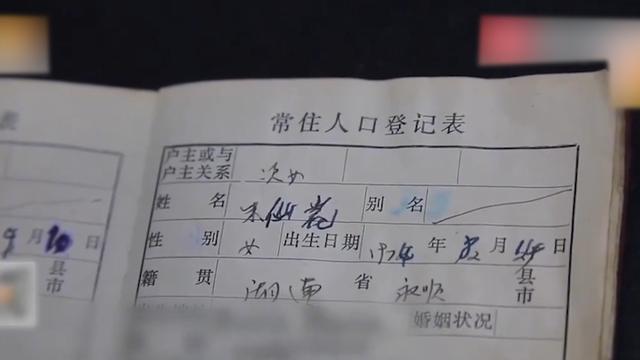 表
常住人口登记表
户主或与
户主关系 次女
姓 名 仙 别 名
性 别 女 出生日期 年 月 日
月 日
籍 贯 湖南 省 永顺 县
市
县
市
婚姻状况